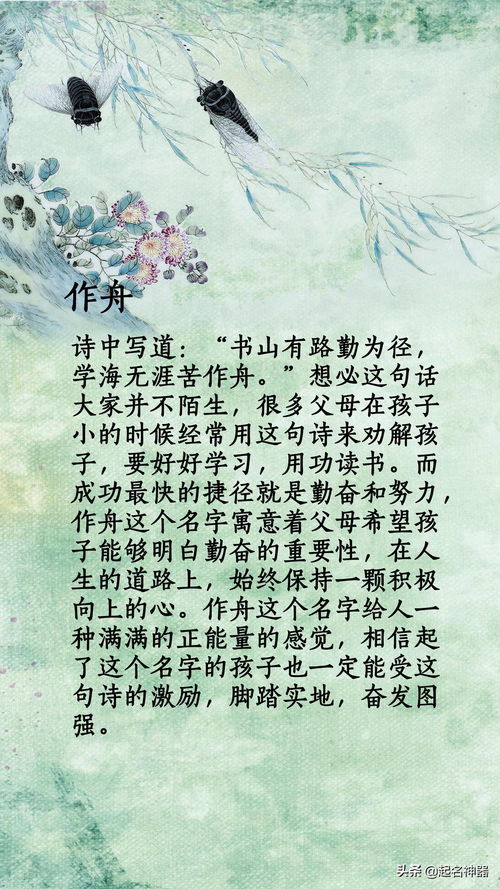 作舟
诗中写道：“书山有路勤为径，
学海无涯苦作舟。”想必这句话
大家并不陌生，很多父母在孩子
小的时候经常用这句诗来劝解孩
子，要好好学习，用功读书。而
成功最快的捷径就是勤奋和努力，
作舟这个名字寓意着父母希望孩
子能够明白勤奋的重要性，在人
生的道路上，始终保持一颗积极
向上的心。作舟这个名字给人一
种满满的正能量的感觉，相信起
了这个名字的孩子也一定能受这
句诗的激励，脚踏实地，奋发图
强。
头条 @起名神器